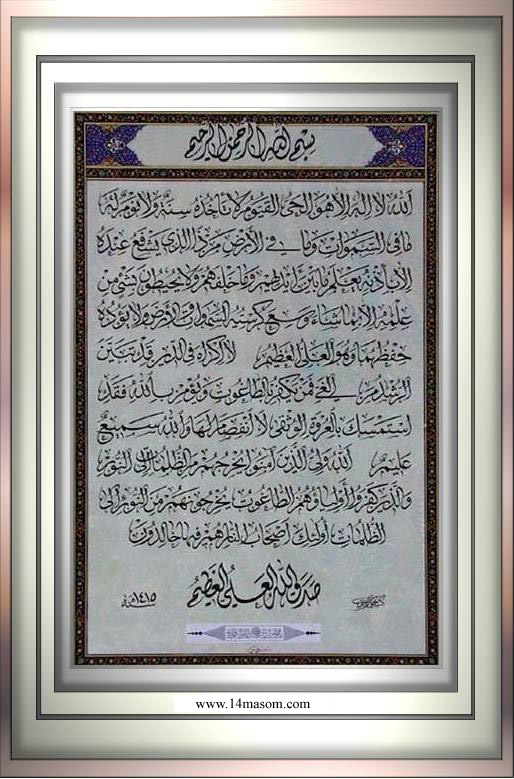 بسم الله الرحمن الرحيم
الله لا إله إلا هو الحي القيوم لا تأخذه سنة ولا نوم له
ما في السموات وما في الأرض من ذا الذي يشفع عنده
إلا بإذنه يعلم ما بين أيديهم وما خلفهم ولا يحيطون بشيء من
علمه إلا بما شاء وسع كرسيه السموات والأرض ولا يؤده
حفظهما وهو العلي العظيم لا إكراه في الدين قد تبين
الرشد من الغي فمن يكفر بالطاغوت ويؤمن بالله فقد
استمسك بالعروة الوثقى لا انفصام لها والله سميع
عليم الله ولي الذين آمنوا يخرجهم من الظلمات إلى النور
والذين كفروا أولياؤهم الطاغوت يخرجونهم من النور إلى
الظلمات أولئك أصحاب النار هم فيها خالدون
صدق الله العلي العظيم
سنة ١٤١٥هـ
www.14masom.com